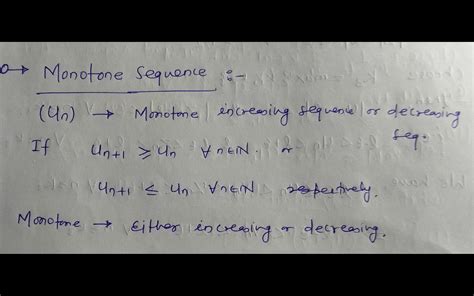 → Monotone Sequence :-
(Un) → Monotone increasing sequence or decreasing seq.
If Un+1 ≥ Un ∀n∈N. or
Un+1 ≤ Un ∀n∈N respectively.
Monotone → Either increasing or decreasing.